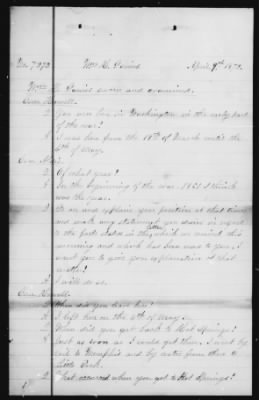 No. 7273    Wm. H.    April 9th 1872.
Wm. H.    sworn and examined.
Com. Howell.
Q. You were in Washington in the early part
of the war?
A. I was from the 19th of March until the
6th of May.
Com.
Q. Of what year?
A. In the beginning of the war. 1861 I think
was the year.
Q. Go on and explain your position at that time
and make any statement you desire in regard
to the facts stated in this letter which we received this
morning and which has been read to you. I
want you to give your explanation of that
matter?
A. I will do so.
Com. Howell.
Q. When did you leave here?
A. I left here on the 6th of May.
Q. When did you get back to Hot Springs?
A. Just as soon as I could get there. I went by
rail to Memphis and by water from there to
Little Rock.
Q. What occurred when you got to Hot Springs?